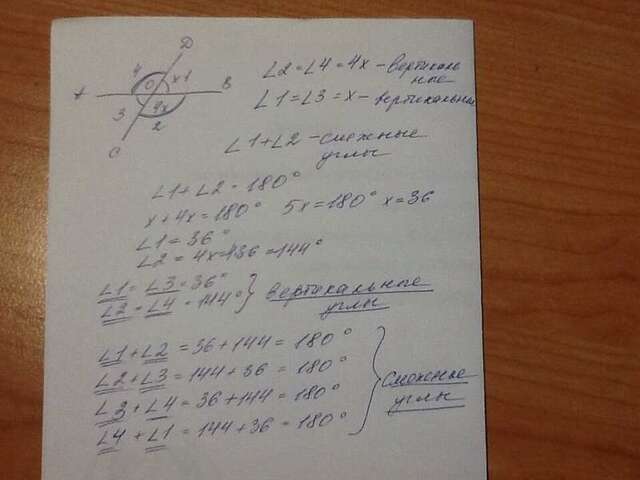 D
4 O x 1
A B
3 4x
2
C
∠2=∠4=4x - вертикаль
ные
∠1=∠3=x - вертикальные
∠1+∠2 - смежные
углы
∠1+∠2 = 180°
x+4x=180° 5x=180° x=36
∠1=36°
∠2 = 4x=4·36=144°
∠1=∠3=36°
∠2=∠4=144° } вертикальные
углы
∠1+∠2 = 36+144 = 180°
∠2+∠3 = 144+36 = 180°
∠3+∠4 = 36+144 = 180°
∠4+∠1 = 144+36 = 180°
} Смежные
углы